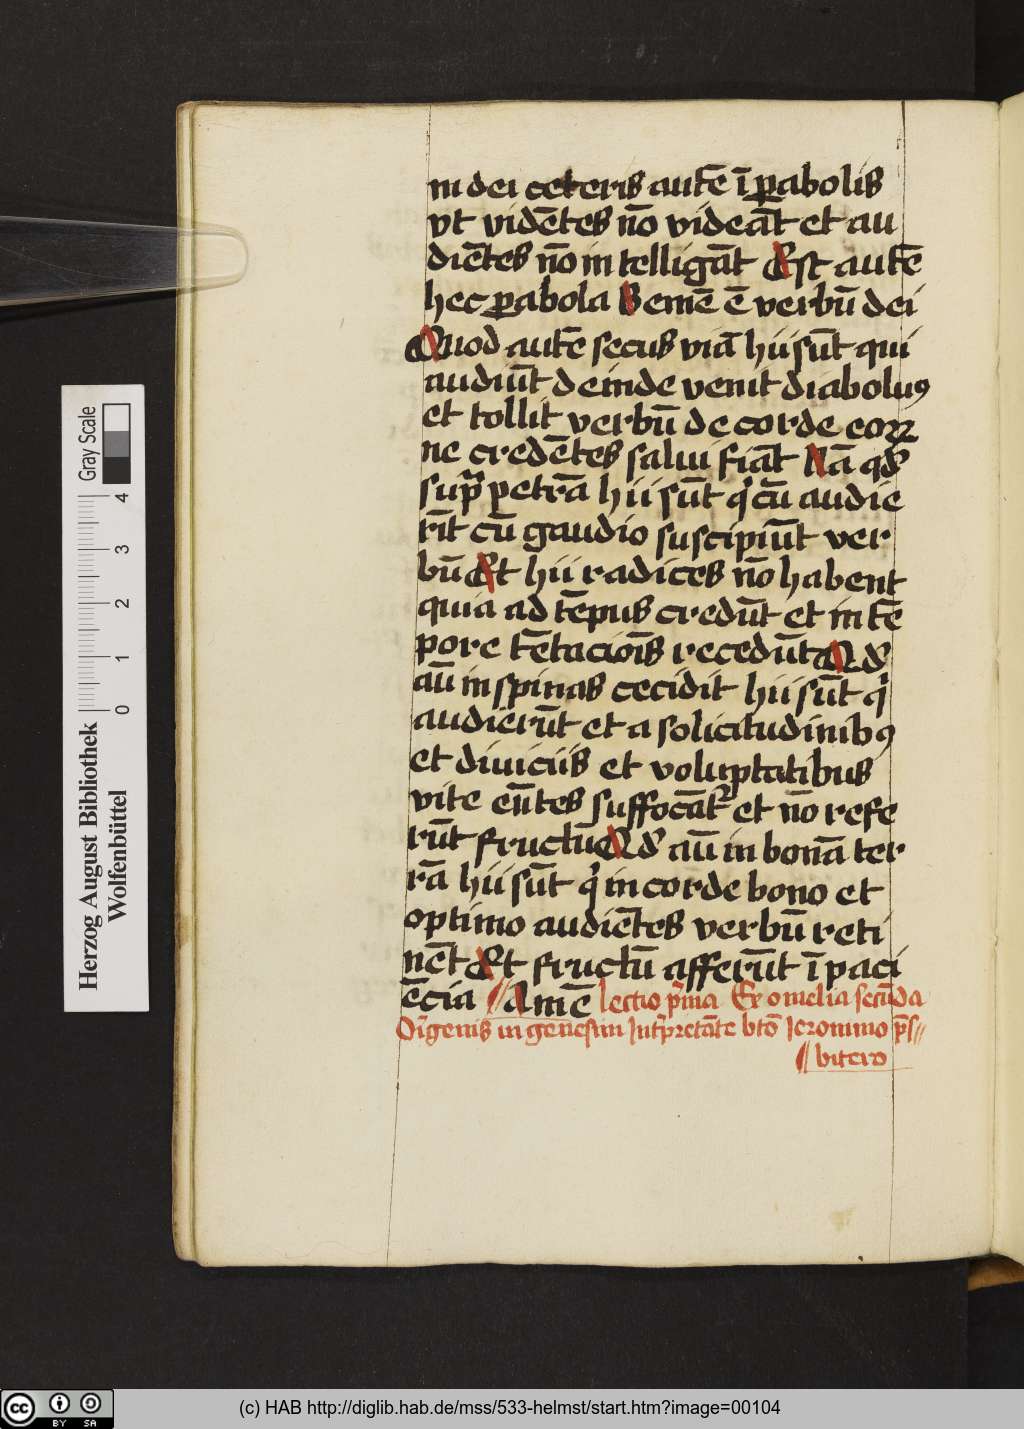 ni dei ceteris autē ī ꝑabolis
vt vidētes nō videāt et au
diētes nō intelligāt Est autē
hec ꝑabola Semē ē verbū dei
Quod autē secus viā hii sūt qui
audiūt deinde venit diabolus
et tollit verbū de corde eoꝝ
ne credētes salui fiāt Nā qd̓
supra petrā hii sūt qͥ cū audie
rīt cū gaudio suscipiūt ver
bū Et hii radices nō habent
quia ad tēpus credūt et in tē
pore tētacioīs recedūt Qd̓
aū in spinas cecidit hii sūt qͥ
audierūt et a solicitudinibꝰ
et diuiciis et voluptatibus
vite eūtes suffocāt᷑ et nō refe
rūt fructū Qd̓ aū in bonā ter
rā hii sūt qͥ in corde bono et
optimo audiētes verbū reti
nēt Et fructū afferūt ī paci
ēcia Amē lectio pͥma Ex omelia secūda
Oriͥgenis in genesim Int̓pretāte bt̄o Ieronimo p̄s
bitero
Gray Scale
0 1 2 3 4
Herzog August Bibliothek
Wolfenbüttel
cc BY SA
(c) HAB http://diglib.hab.de/mss/533-helmst/start.htm?image=00104